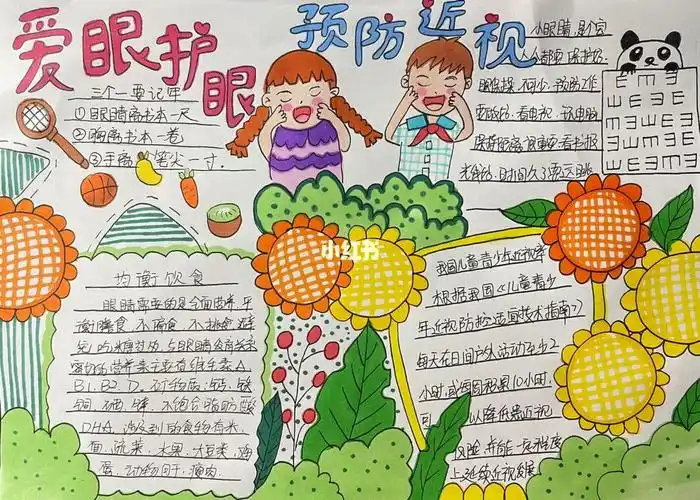 爱眼护眼
预防近视
三个一要记牢
①眼睛离书本一尺
②胸离书本一拳
③手离 笔尖一寸.
小眼睛,是个宝
人人都要保护好.
眼保操.不可少.预防工作
要做好.看电视.玩电脑
保持距离很重要.看书报
光线好.时间久了需远眺
E
小红书
均衡饮食
眼睛需要的是全面营养.平
衡膳食.不偏食.不挑食.避
免吃
营养素主要有维生素A.
B1.B2.D.矿物质:钙.铁
铜.硒.锌.不饱合脂肪酸
DHA.涉及到的食物有米.
面.蔬菜.水果.大豆类.鸡
蛋.动物肝.瘦肉.
我国儿童青少年近视率
根据我国《儿童青少
年近视防控适宜技术指南》
每天在日间户外活动至少2
小时.或每周积累10小时.
可 以降低患近视
风险.并能一定程度
上延缓近视发展